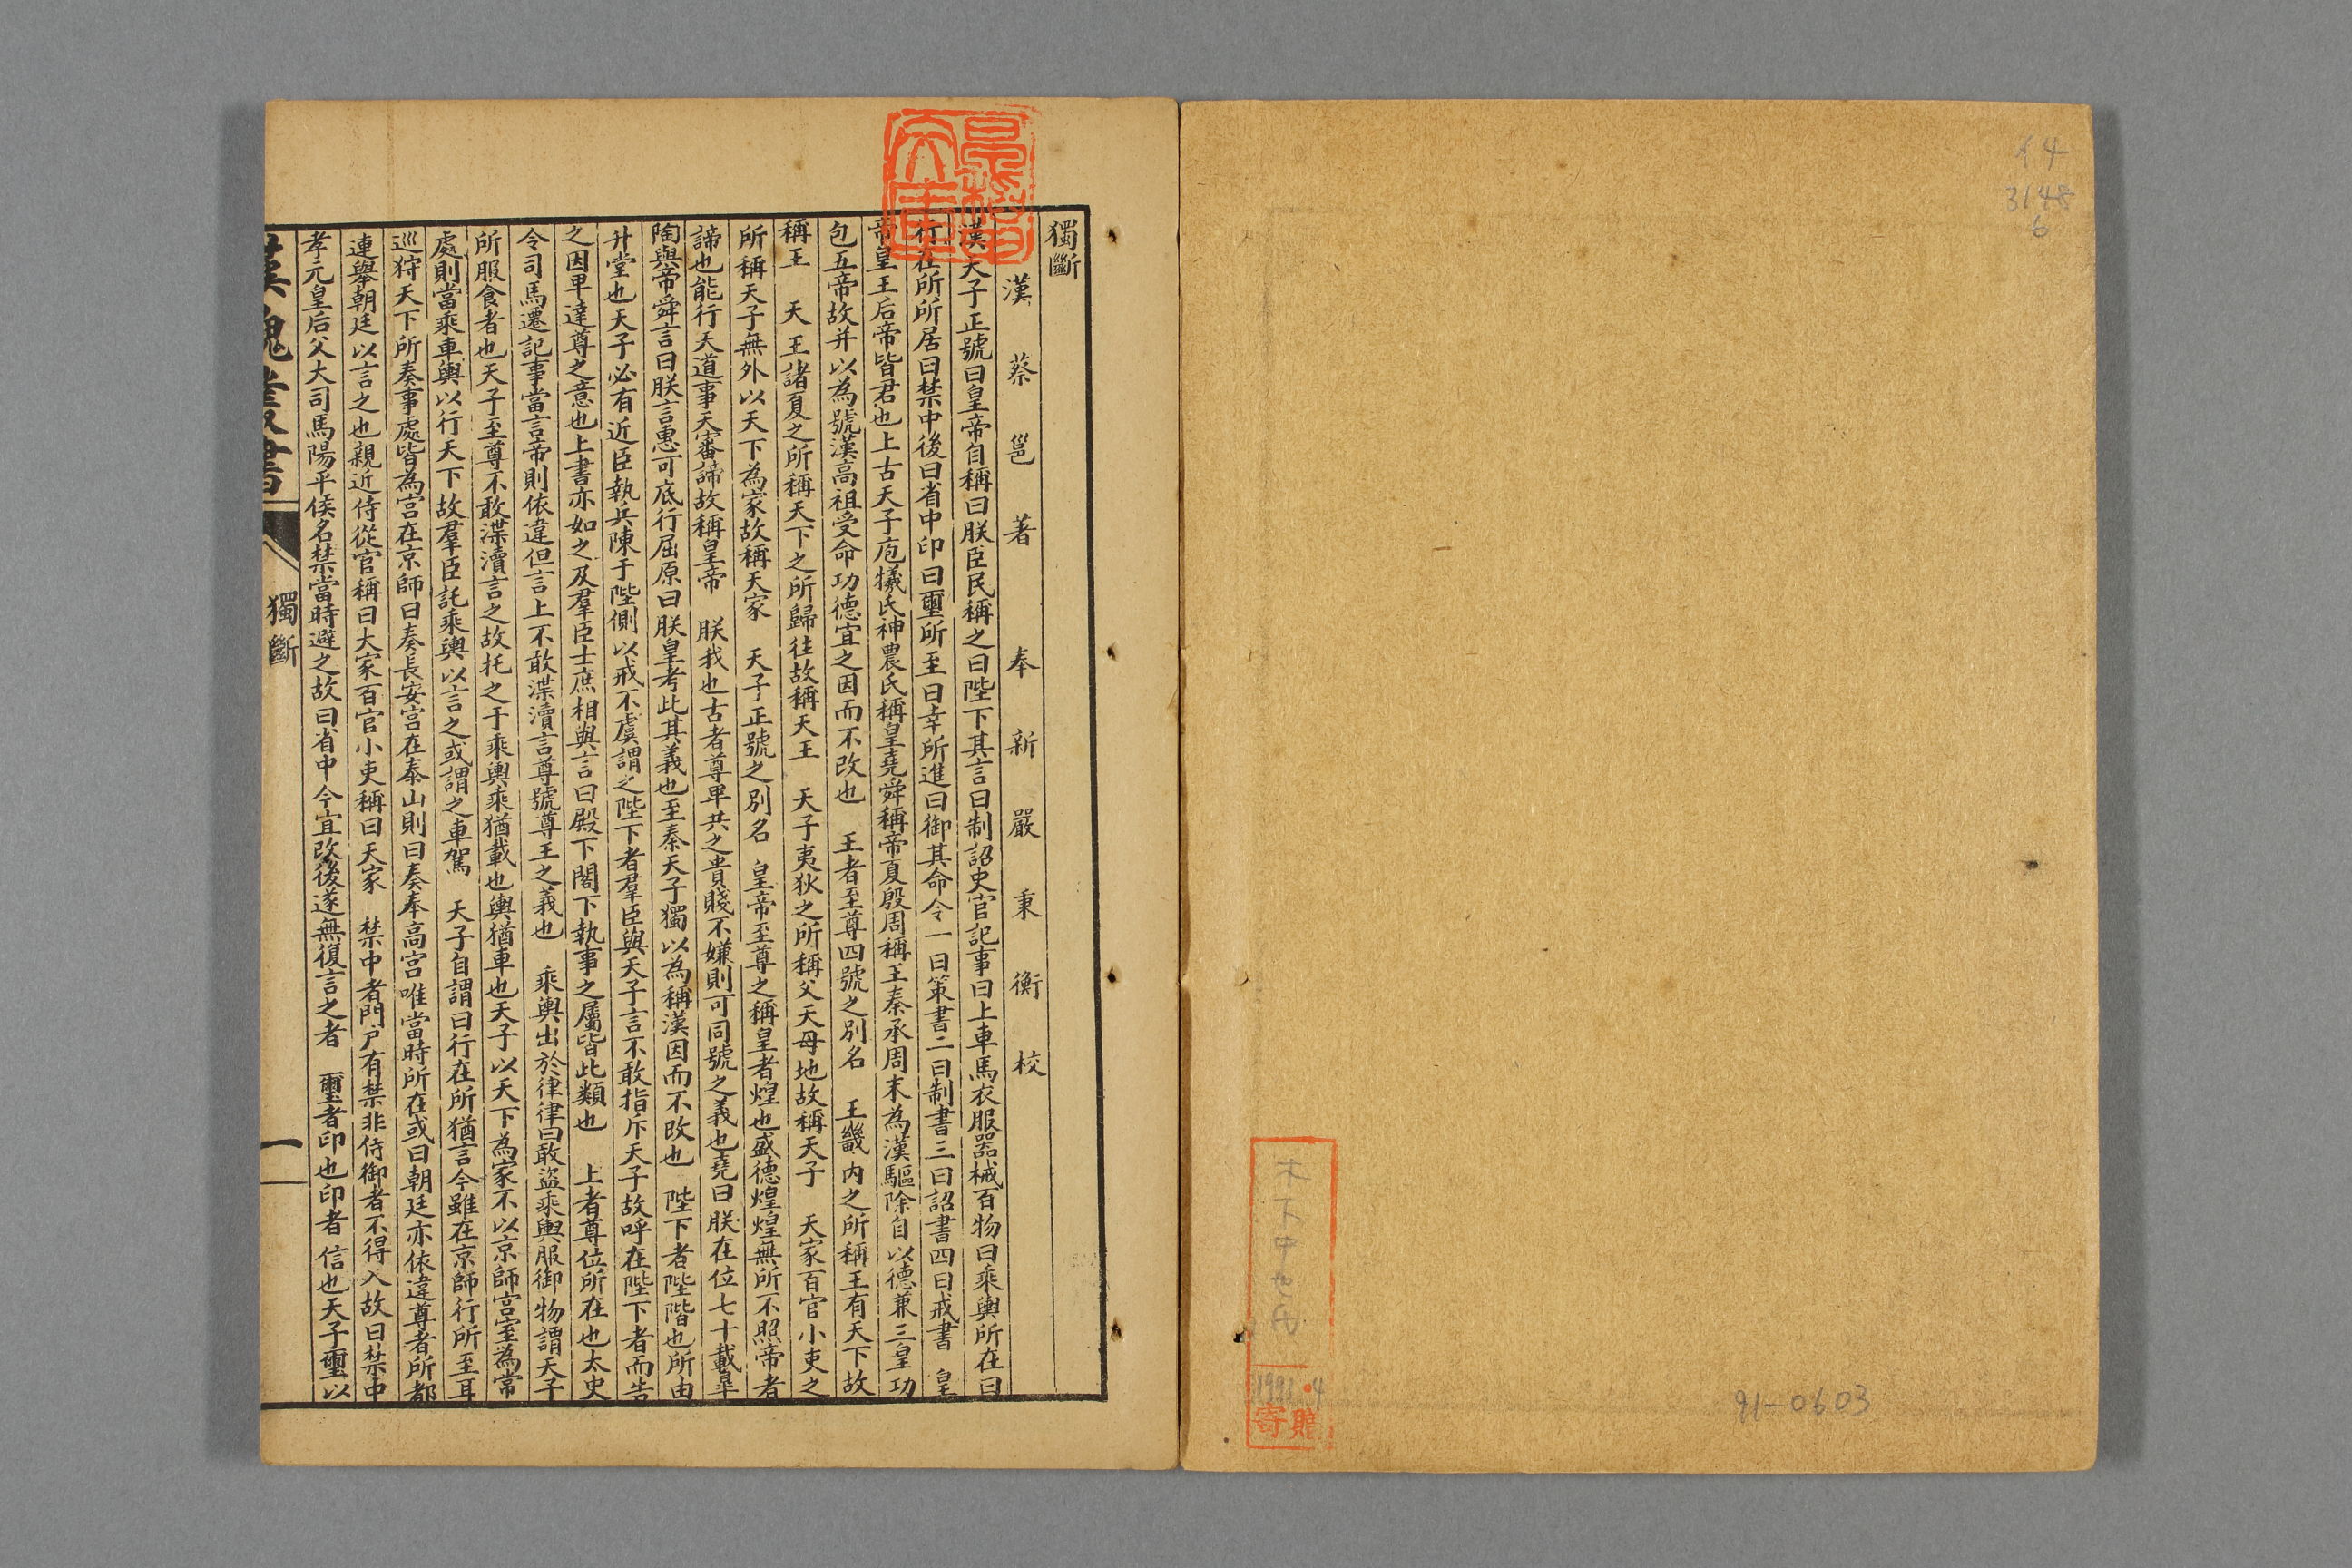 イ4
3148
6
木下中也氏
1991.4
寄贈
91-0603
獨斷
漢 蔡邕著 奉新嚴秉衡校
漢天子正號曰皇帝自稱曰朕臣民稱之曰陛下其言曰制詔史官記事曰上車馬衣服器械百物曰乘輿所在曰
行在所所居曰禁中後曰省中印曰璽所至曰幸所進曰御其命令一曰策書二曰制書三曰詔書四曰戒書 皇
帝皇王后帝皆君也上古天子庖犧氏神農氏稱皇堯舜稱帝夏殷周稱王秦承周末為漢驅除自以德兼三皇功
包五帝故并以為號漢高祖受命功德宜之因而不改也 王者至尊四號之別名 王畿內之所稱王有天下故
稱王 天王諸夏之所稱天下之所歸往故稱天王 天子夷狄之所稱父天母地故稱天子 天家百官小吏之
所稱天子無外以天下為家故稱天家 天子正號之別名 皇帝至尊之稱皇者煌也盛德煌煌無所不照帝者
諦也能行天道事天審諦故稱皇帝 朕我也古者尊卑共之貴賤不嫌則可同號之義也堯曰朕在位七十載皐
陶與帝舜言曰朕言惠可底行屈原曰朕皇考此其義也至秦天子獨以為稱漢因而不改也 陛下者陛階也所由
升堂也天子必有近臣執兵陳于陛側以戒不虞謂之陛下者羣臣與天子言不敢指斥天子故呼在陛下者而告
之因卑達尊之意也上書亦如之及羣臣士庶相與言曰殿下閣下執事之屬皆此類也 上者尊位所在也太史
令司馬遷記事當言帝則依違但言上不敢渫瀆言尊號尊王之義也 乘輿出於律律曰敢盜乘輿服御物謂天子
所服食者也天子至尊不敢渫瀆言之故托之于乘輿乘猶載也輿猶車也天子以天下為家不以京師宮室為常
處則當乘車輿以行天下故羣臣託乘輿以言之或謂之車駕 天子自謂曰行在所猶言今雖在京師行所至耳
巡狩天下所奏事處皆為宮在京師曰奏長安宮在泰山則曰奏奉高宮唯當時所在或曰朝廷亦依違尊者所都
連舉朝廷以言之也親近侍從官稱曰大家百官小吏稱曰天家 禁中者門戶有禁非侍御者不得入故曰禁中
孝元皇后父大司馬陽平侯名禁當時避之故曰省中今宜改後遂無復言之者 璽者印也印者信也天子璽以
漢魏叢書 獨斷 一